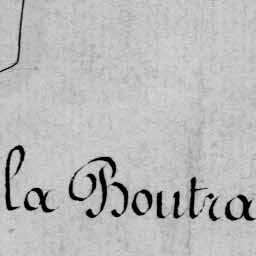 la Boutra